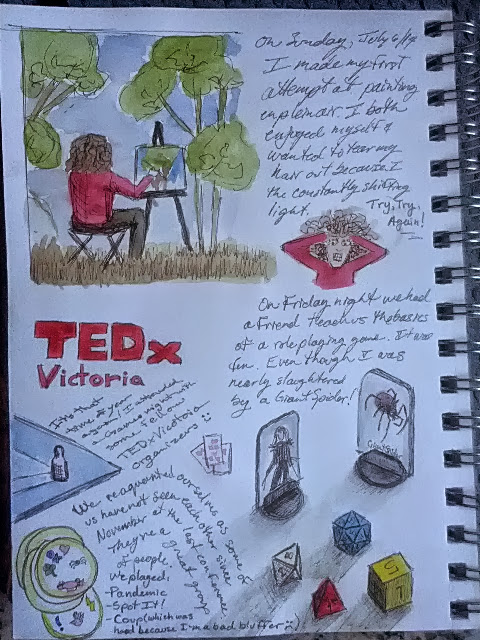 On Sunday, July 6/14
I made my first
attempt at painting
en plenair. I both
enjoyed myself &
wanted to tear my
hair out because of
the constantly shifting
light.
Try, Try,
Again!
On Friday night we had
a friend teach us the basics
of a roleplaying game. It was
fun. Even though I was
nearly slaughtered
by a Giant Spider!
TEDx
Victoria
It's that
time of year
again! I attended
Games night with
some fellow
TEDx Victoria
organizers
We reaquented ourselves as some of
us have not seen each other since
November at the last conference
They're a great group
of people.
We played,
-Pandemic
-Spot It!
-Coup (which was
hard because I'm a bad bluffer :)